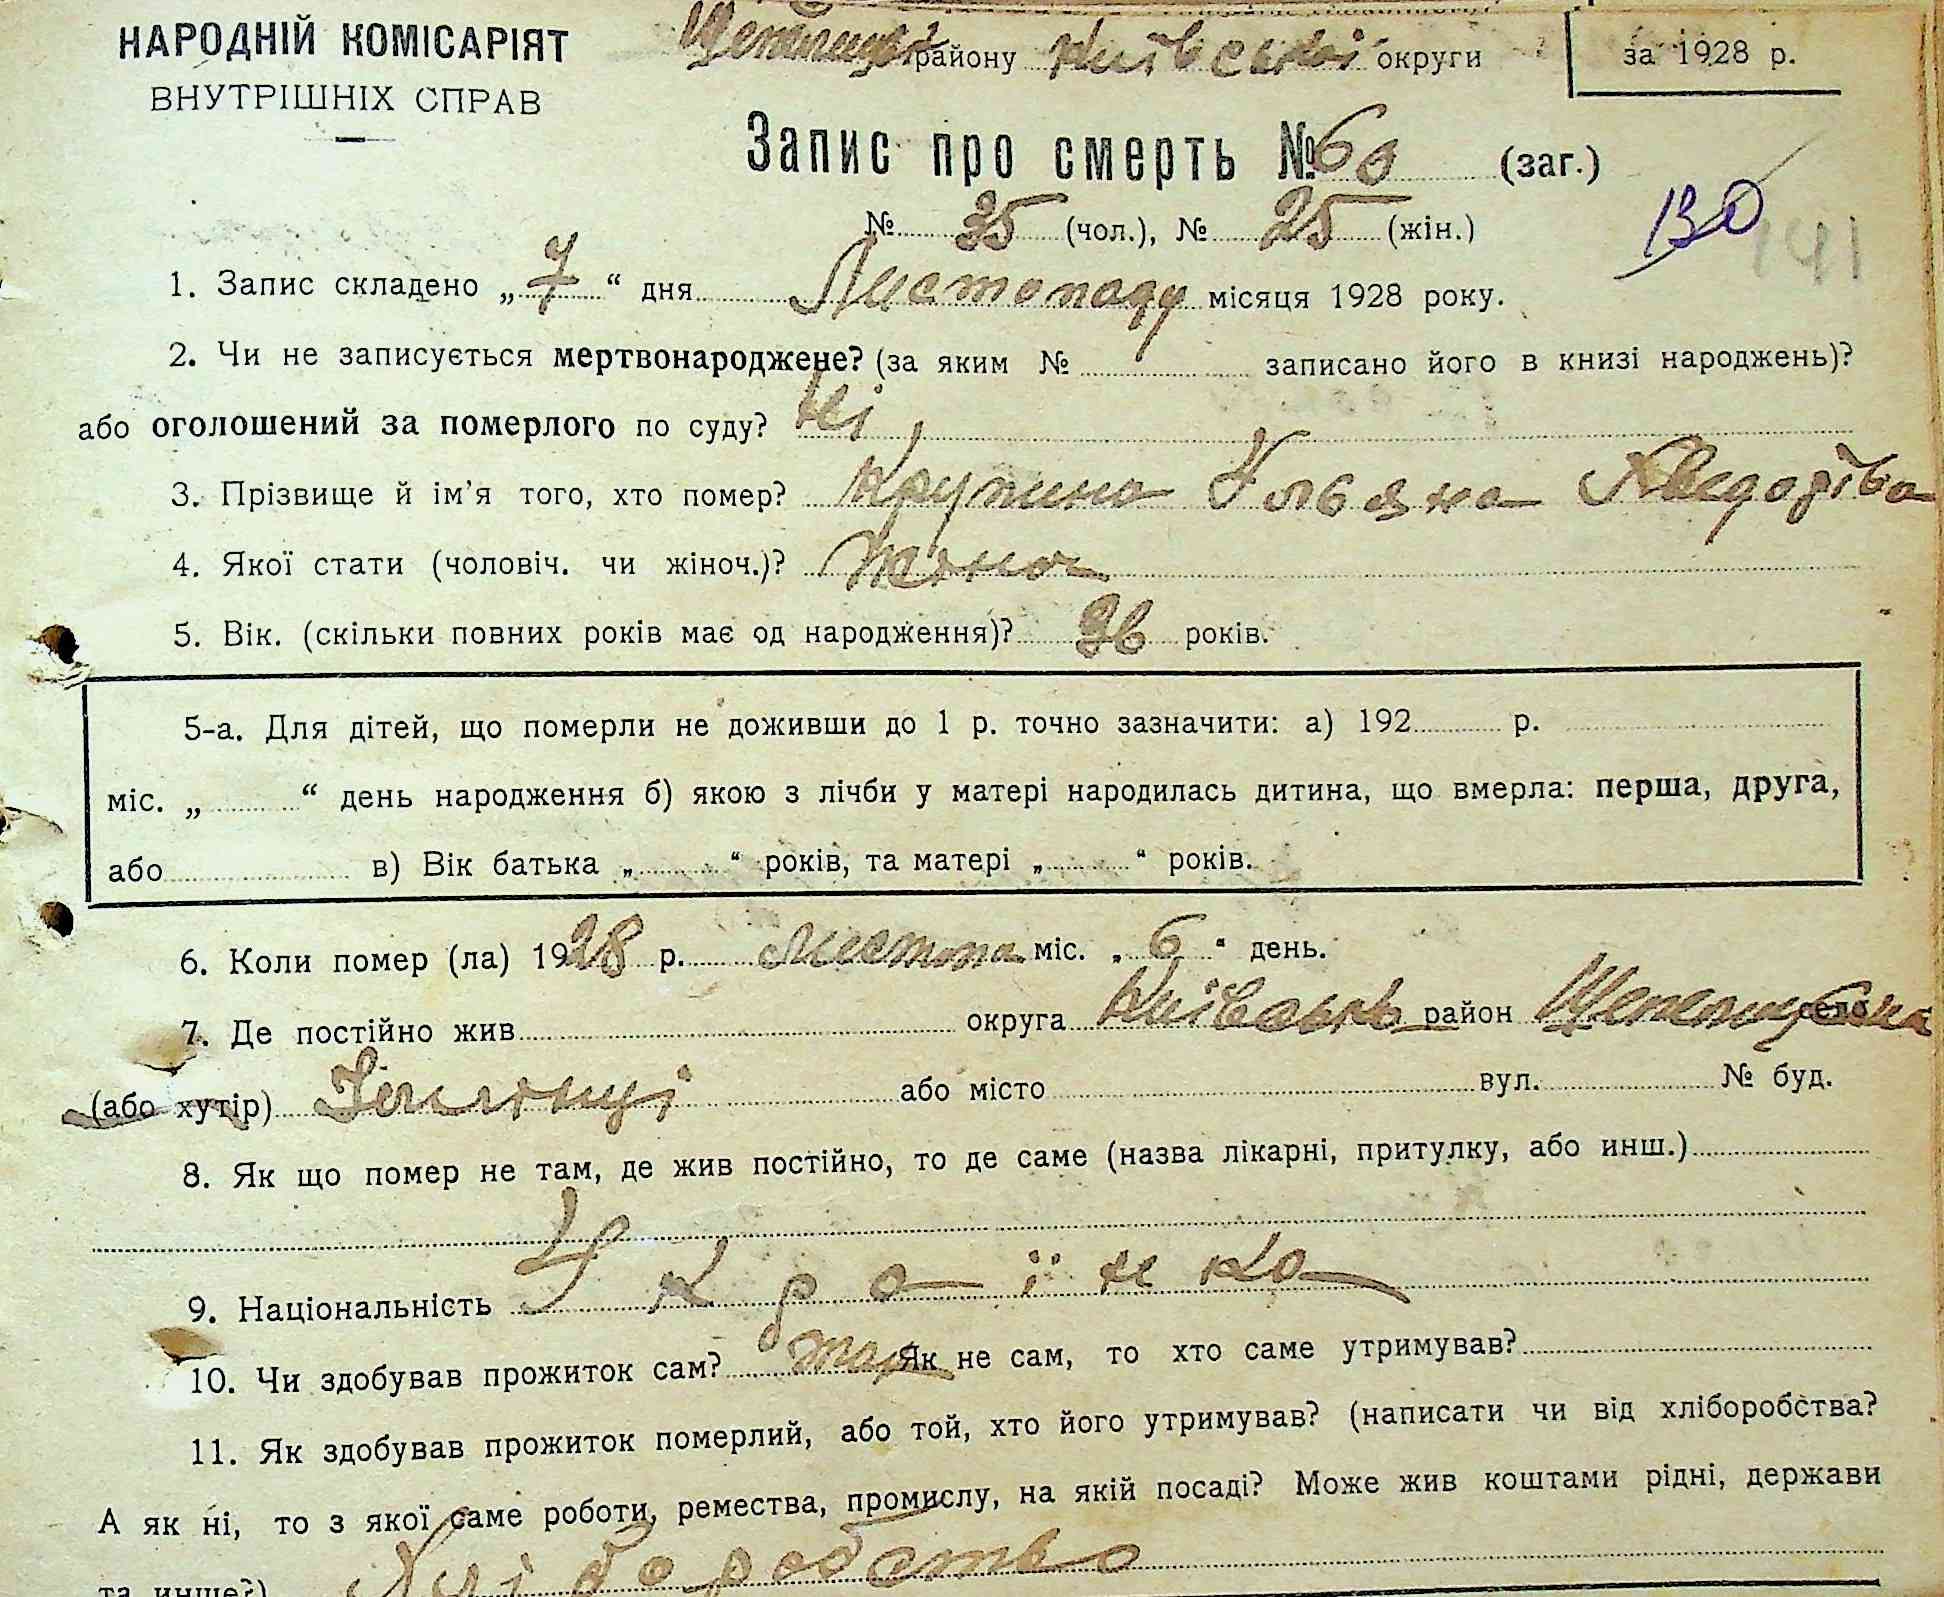 НАРОДНІЙ КОМІСАРІЯТ
ВНУТРІШНІХ СПРАВ
району Київської округи
за 1928 р.
Запис про смерть № 60 (заг.)
№ 35 (чол.), № 25 (жін.)
130
141
1. Запис складено „7“ дня Листопаду місяця 1928 року.
2. Чи не записується мертвонароджене? (за яким № записано його в книзі народжень)?
або оголошений за померлого по суду? Ні
3. Прізвище й ім’я того, хто помер? Крупина Ульяна
4. Якої стати (чоловіч. чи жіноч.)? Жіноч
5. Вік. (скільки повних років має од народження)? 36 років.
5-а. Для дітей, що померли не доживши до 1 р. точно зазначити: а) 192 р.
міс. „ “ день народження б) якою з лічби у матері народилась дитина, що вмерла: перша, друга,
або в) Вік батька „ “ років, та матері „ “ років.
6. Коли помер (ла) 1928 р. листопа міс. „6“ день.
7. Де постійно жив округа Київськ район село
(або хутір) або місто вул. № буд.
8. Як що помер не там, де жив постійно, то де саме (назва лікарні, притулку, або инш.)
9. Національність Українка
10. Чи здобував прожиток сам? так Як не сам, то хто саме утримував?
11. Як здобував прожиток померлий, або той, хто його утримував? (написати чи від хліборобства?
А як ні, то з якої саме роботи, ремества, промислу, на якій посаді? Може жив коштами рідні, держави
та инше?) Хліборобство